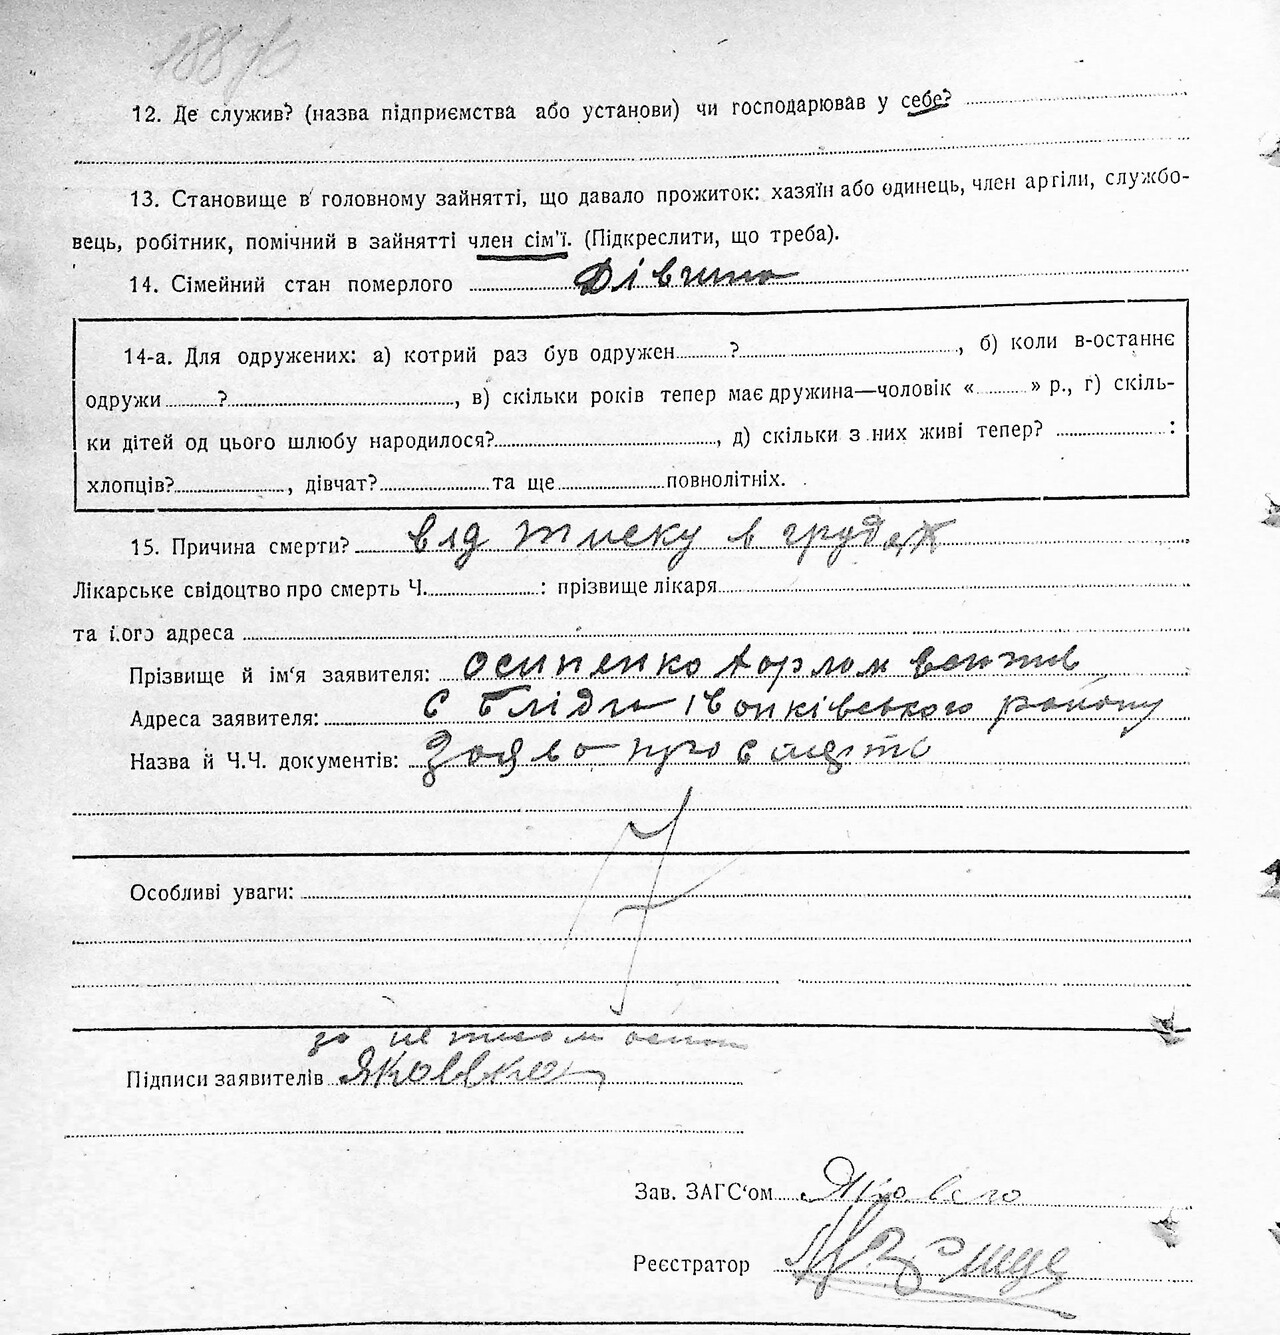 188
12. Де служив? (назва підприємства або установи) чи господарював у себе?
13. Становище в головному зайнятті, що давало прожиток: хазяїн або одинець, член артіли, службо-
вець, робітник, помічний в зайнятті член сім'ї. (Підкреслити, що треба).
14. Сімейний стан померлого Дівчина
14-а. Для одружених: а) котрий раз був одружен ?, б) коли в-останнє
одружи ?, в) скільки років тепер має дружина—чоловік « » р., г) скіль-
ки дітей од цього шлюбу народилося?, д) скільки з них живі тепер? :
хлопців?, дівчат? та ще повнолітніх.
15. Причина смерти? від тиску в грудях
Лікарське свідоцтво про смерть Ч. : прізвище лікаря
та його адреса
Прізвище й ім'я заявителя: Осипенко
Адреса заявителя: с Блідча Іванківського району
Назва й Ч.Ч. документів: Заява про смерть
Особливі уваги:
за
Підписи заявителів
Зав. ЗАГС'ом
Реєстратор